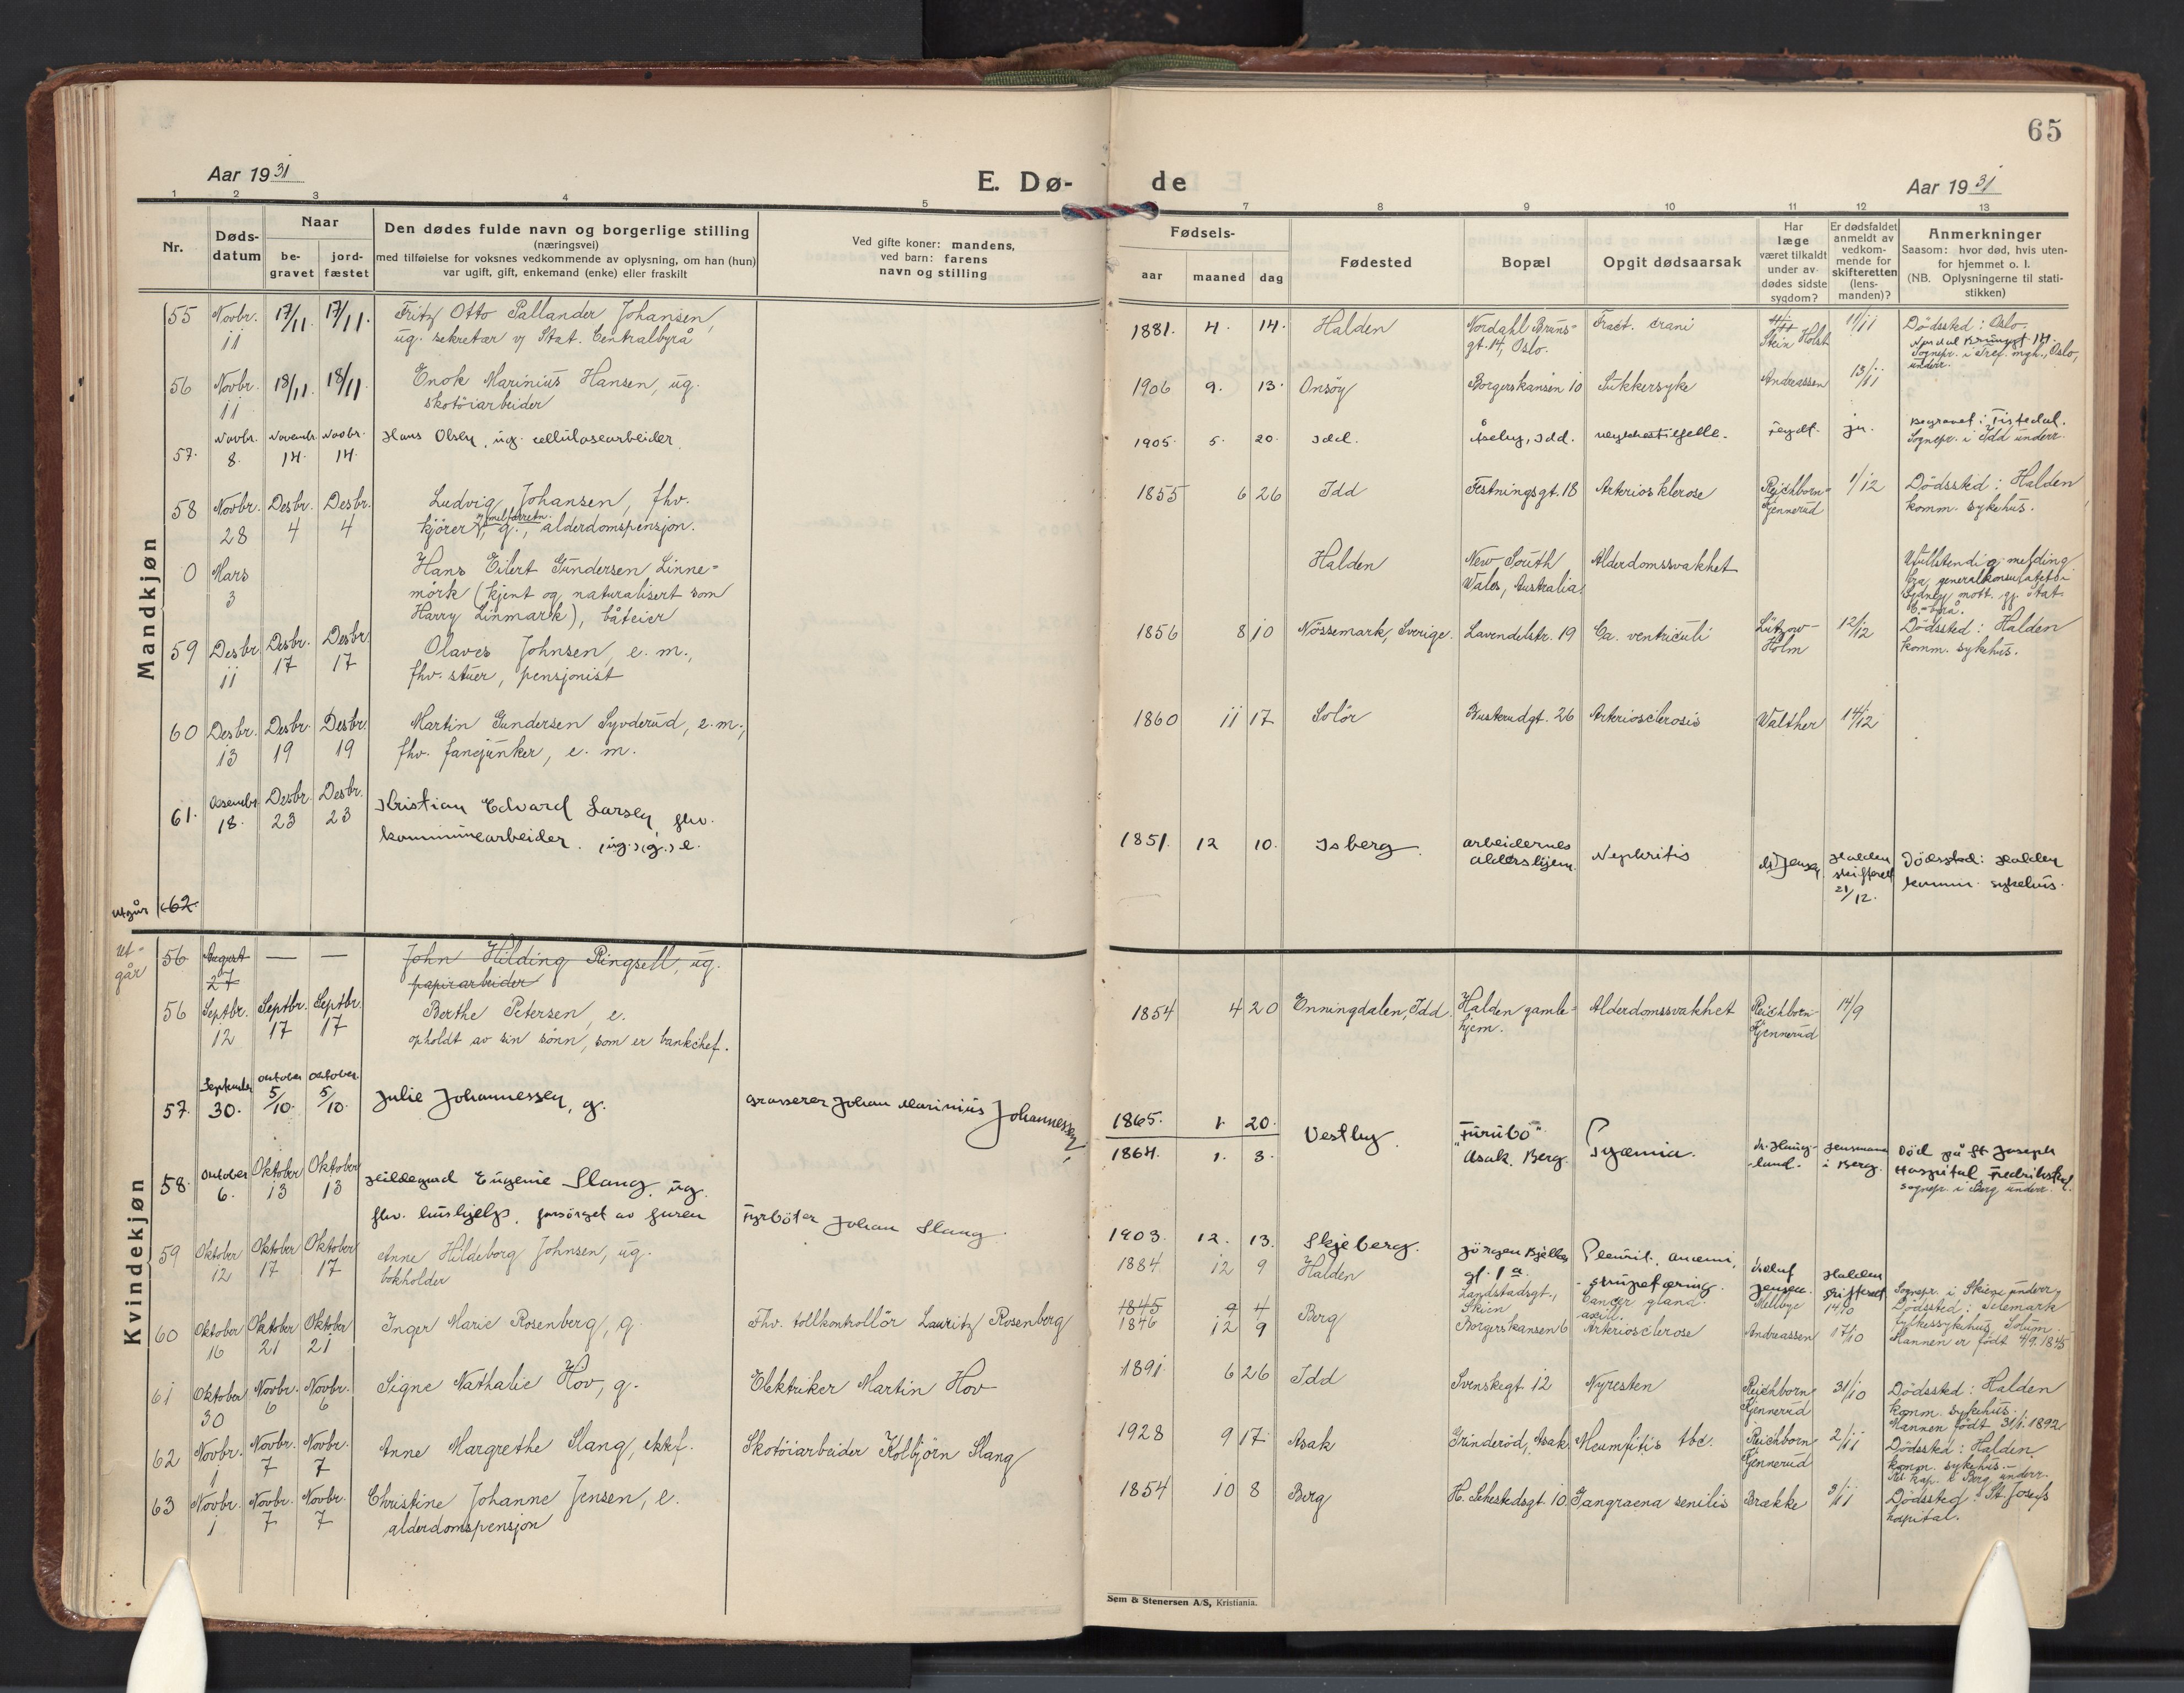 65
Aar 1931
E. Dø-
de
Aar 1931
1 2 3 4 5 7 8 9 10 11 12 13
Nr.
Døds-
datum
Naar
be-
gravet
jord-
fæstet
Den dødes fulde navn og borgerlige stilling
(næringsvei)
med tilføielse for voksnes vedkommende av oplysning, om han (hun)
var ugift, gift, enkemand (enke) eller fraskilt
Ved gifte koner: mandens,
ved barn: farens
navn og stilling
Fødsels-
aar maaned dag
Fødested
Bopæl
Opgit dødsaarsak
Har
læge
været tilkaldt
under av-
dødes sidste
sygdom?
Er dødsfaldet
anmeldt av
vedkom-
mende for
skifteretten
(lens-
manden)?
Anmerkninger
Saasom: hvor død, hvis uten-
for hjemmet o. l.
(NB. Oplysningerne til stati-
stikken)
Mandkjøn
55 Novbr. 17/11. 17/11. Fritz Otto Pallander Johansen, 1881. 4. 14. Halden Nordahl Bruns- Fract. crani 11/11 Dödssted: Oslo.
11 ug. sekretær v/ Stat. Centralbyrå gt. 14, Oslo. Stein Holst
Sognepr. i Tref. mgh., Oslo,
underr.
56 Novbr. 18/11. 18/11. Enok Marinius Hansen, ug. 1906 9. 13. Onsöy Borgerskansen 10 Sukkersyke Andreassen 13/11
11 skotöiarbeider
57. Novbr. Novembr. Novbr. Hans Olsen, ug. cellulosearbeider 1905. 5. 20. Idd. Åseby, Idd. ulykkestilfelle. Feydt. ja. Begravet i Tistedal.
8. 14. 14. Sognepr. i Idd underr.
58 Novbr. Desbr. Desbr. Ludvig Johansen, fhv. 1855 6 26 Idd Festningsgt. 18 Arteriosklerose Reichborn- 1/12 Dödssted: Halden
28 4 4 kjörer, g., alderdomspensjon. Kjennerud komm. sykehus.
0 Mars Hans Eilert Gundersen Linne- Halden New South Alderdomssvakhet Ufullstendig melding
3 mörk (kjent og naturalisert som Wales, Australia. fra generalkonsulatet i
Harry Linmark), båteier Sydney mott. gj. Stat.
C.-byrå.
59 Desbr. Desbr. Desbr. Olaves Johnsen, e. m., 1856 8 10 Nössemark, Sverige. Lavendelstr. 19 Ca. ventriculi Lützow- 12/12 Dödssted: Halden
11 17 17 fhv. stuer, pensjonist Holm komm. sykehus.
60 Desbr. Desbr. Desbr. Martin Gundersen Syverud, e. m., 1860 11 17 Solör Buskrudgt. 26 Arteriosclerosis Walther 14/12
13 19 19 fhv. fanejunker, e. m.
61. Desembr. Desbr. Desbr. Kristian Edvard Larsen, fhv. 1851. 12 10. Isberg. arbeidernes Nephritis Halden Dödssted: Halden
18. 23 23 kommunearbeider. (ug.) (g.) e. aldershjem. dr. Jensen skifterett komm. sykehus.
21/12.
utgår 62.
Kvindekjøn
ut-
går 56 August — — John Hilding Ringsell, ug.
27 papirarbeider
56 Septbr. Septbr. Septbr. Berthe Petersen, e. 1854 4 20 Enningdalen, Idd. Halden gamle- Alderdomssvakhet Reichborn- 14/9
12 17 17 opholdt av sin sönn, som er bankchef. hjem. Kjennerud
57. September oktober oktober. Julie Johannessen, g. grosserer Johan Marinius Johannessen 1865. 1. 20. Vestby. "Furubo" Pyæmia. dr. Haug- lensmann Död på St. Joseph
30. 5/10. 5/10. 1864. 1. 3. Asak. Berg. land. i Berg. Hospital Fredrikstad.
sognepr. i Berg underr.
58. oktober Oktober Oktober Hildegard Eugenie Slang, ug. Fyrböter Johan Slang. 1903. 12. 13. Skjeberg. Jörgen Bjelkes Pleurit, anæmi, Halden
6. 13 13 fhv. hushjelp, forsörget av faren gt. 1 a. Jensen. skifterett
59 Oktober Oktober Oktober Anne Hildeborg Johnsen, ug. 1884 12 9 Halden Landstadsgt., Cancer gland. Mellbye 14/10 Sognepr. i Skien underr.
12 17 17 bokholder Skien axill. Dödssted: Telemark
fylkessykehus, Solum.
60 Oktober Oktober Oktober Inger Marie Rosenberg, g. Fhv. tollkontrollör Lauritz Rosenberg 1845 9 4 Berg Borgerskansen 6 Arteriosclerose Andreassen 17/10 Mannen er födt 4/9. 1845
16 21 21 1846 12 9
61 Oktober Novbr. Novbr. Signe Nathalie Hov, g. Elektriker Martin Hov 1891 6 26 Idd Svenskegt. 12 Nyresten Reichborn- 31/10 Dödssted: Halden
30 6 6 Kjennerud komm. sykehus.
Mannen födt 31/1. 1892.
62 Novbr. Novbr. Novbr. Anne Margrethe Slang, ektef. Skotöiarbeider Kolbjörn Slang 1928 9 17 Asak Grinderöd, Asak tbc. Reichborn- 2/11 Dödssted: Halden
1 7 7 Kjennerud komm. sykehus.—
Res. kap. i Berg underr.
63 Novbr. Novbr. Novbr. Christine Johanne Jensen, e. 1854 10 8 Berg H. Sehestedsgt. 10. Gangraena senilis Brække 3/11 Dödssted: St. Josefs
1 7 7 alderdomspensjon hospital.
Sem & Stenersen A/S, Kristiania.